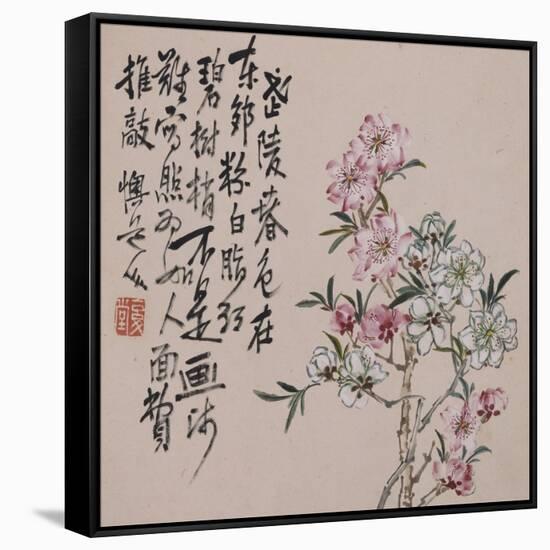 武陵春色在
东郊粉白脂红
碧树梢不是画师
难写照为如人面费
推敲 懊道人